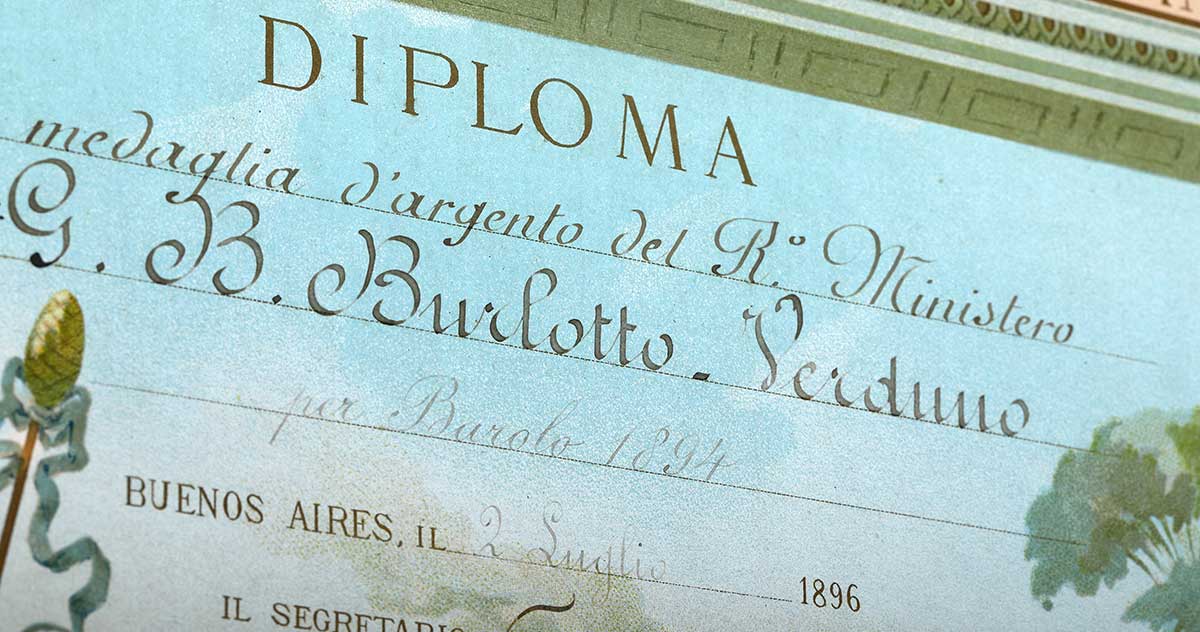 DIPLOMA
medaglia d'argento del R.º Ministero
G. B. Burlotto - Verduno
per Barolo 1894
BUENOS AIRES, IL 2 Luglio 1896
IL SEGRETARIO